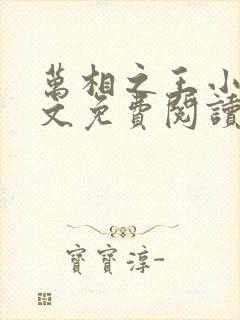 萬相之王小
文免費閱讀
寶寶淳-